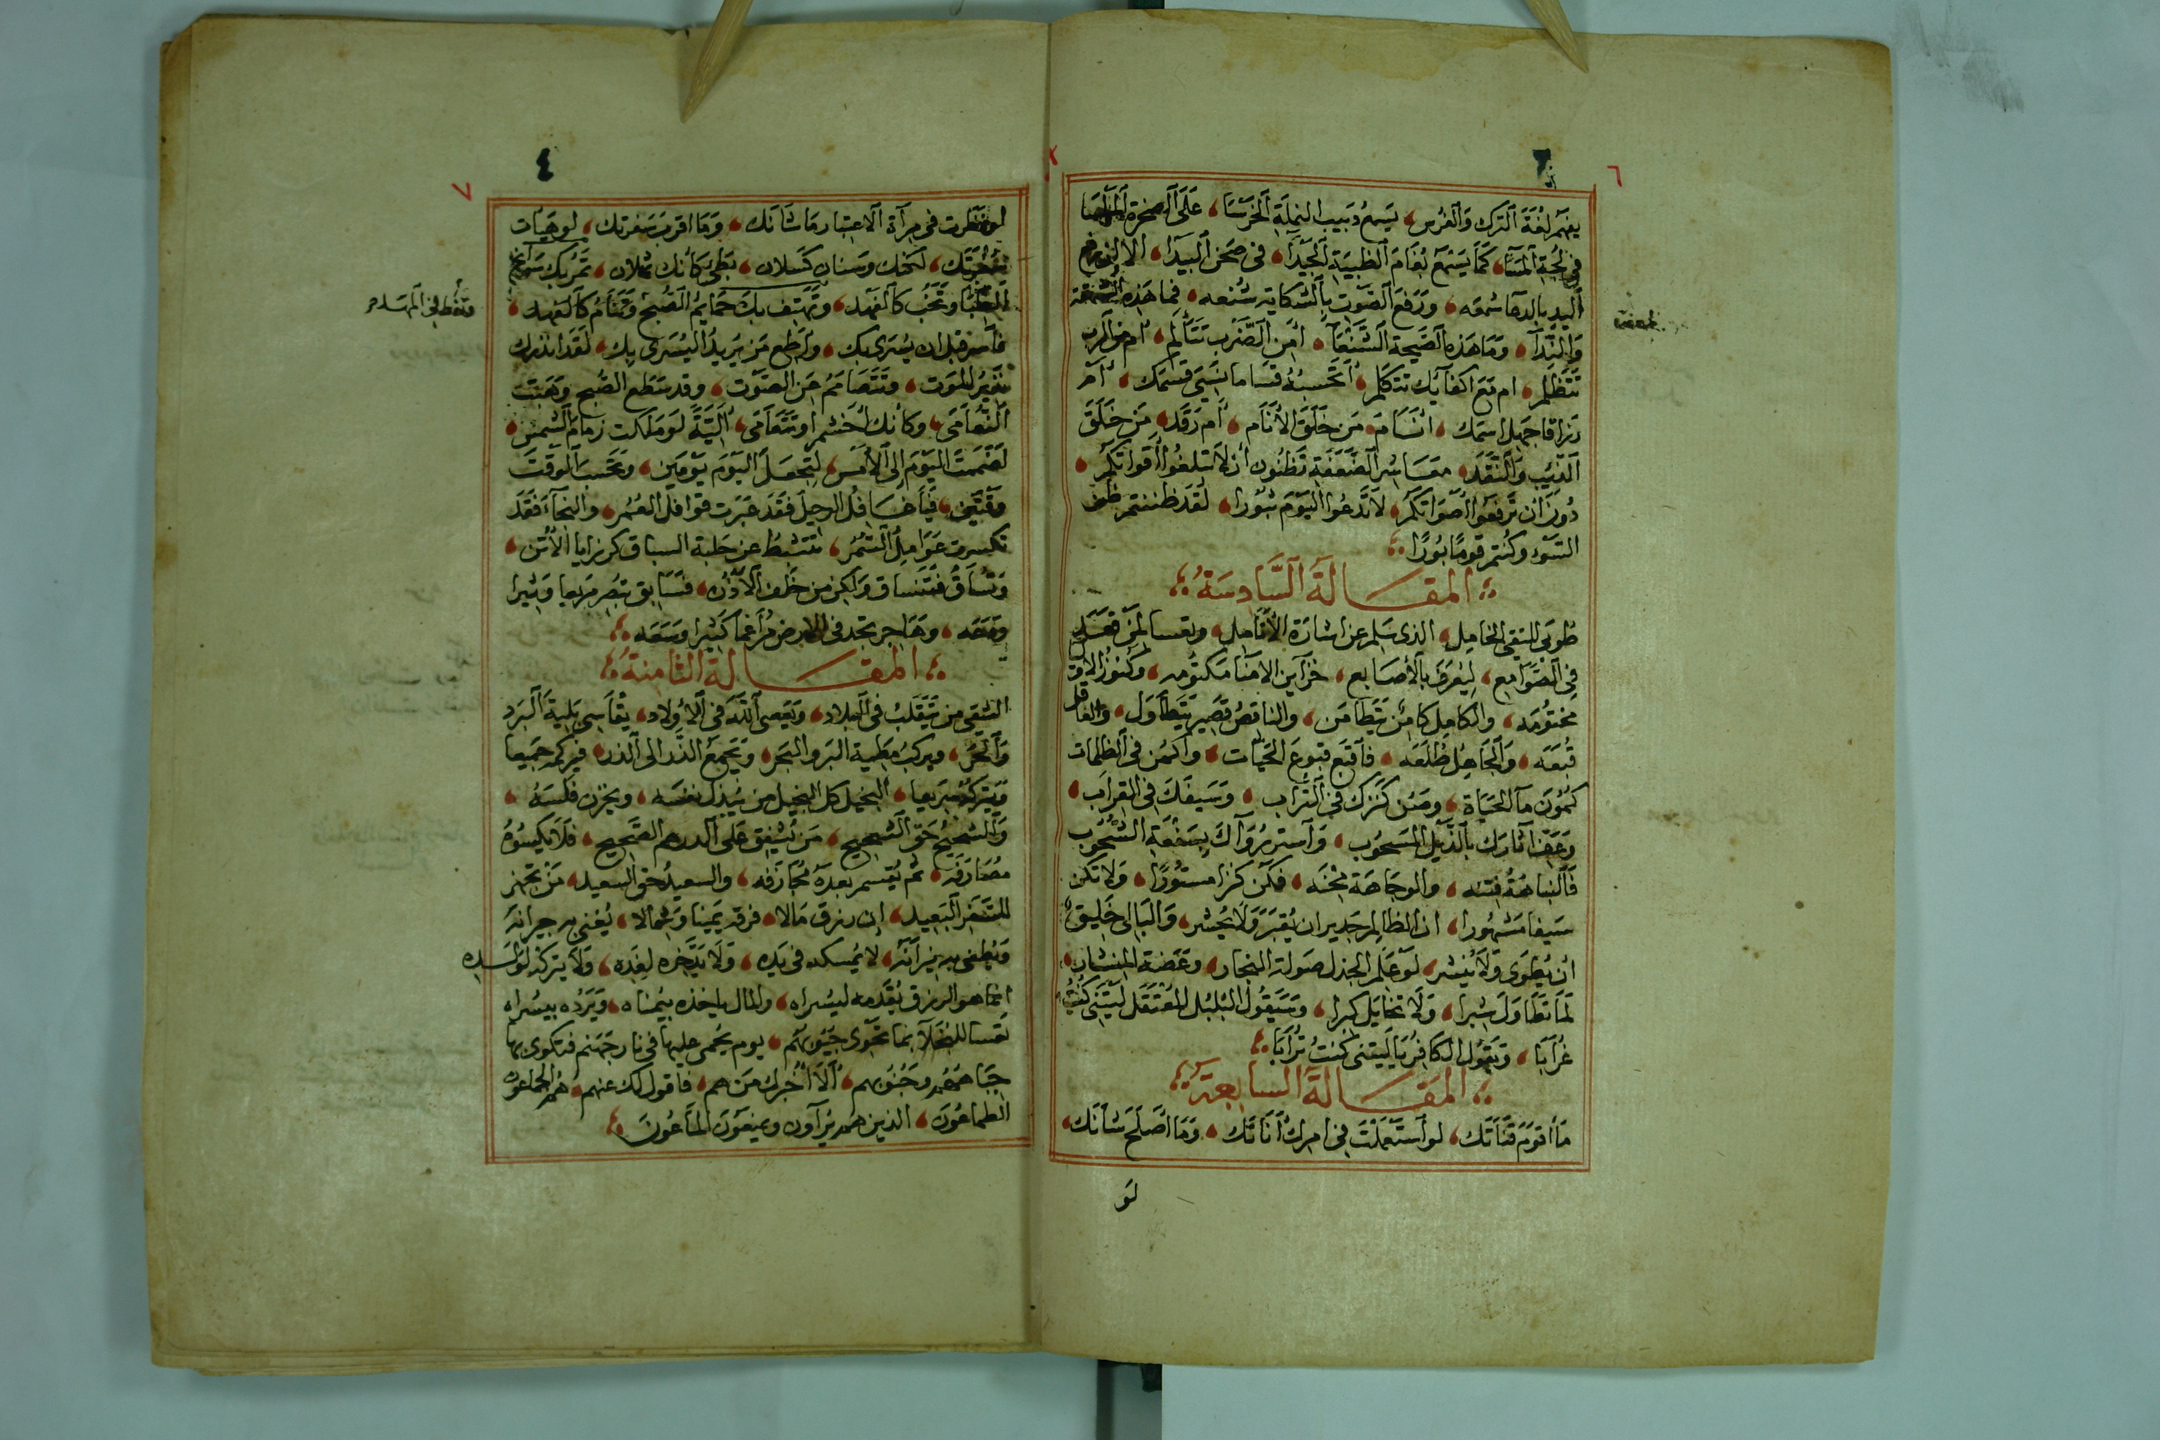 ٦
يفهم لغة الترك والفرس، يسمع دبيب النملة الخرسا، على الصخرة الملسا
في لجة المسا، كما يسمع بغام الظبية الجيدا، في صحن البيدا، الا لن يرفع
اليد بالدعا سمعه، ورفع الصوت بالشكاية شنعه، فما هذه
والندآ، وما هذه الصيحة الشنعا، امن الضرب تتألم، ام من الرب
تتظلم، ام مع اكفآئك تتكلم، أتحسبه قساما نسي قسمك، أم
رزاقا جهل اسمك، انام من خلق الأنام، أم رقد من خلق
الذيب والنقد، معاشر الضعفة تظنون أن لا تبلغوا أقواتكم،
دون ان ترفعوا أصواتكم، لا تدعوا اليوم ثبورا، لقد ظننتم ظن
السوء وكنتم قوما بورا
المقالة السادسة
طوبى للتقي الخامل، الذي سلم عن اشارة الأنامل، وتعسا لمن قعد
في الصوامع، ليعرف بالأصابع، خزآين الامنا مكتومه، وكنوز الاوليا
مختومه، والكامل كامن يتطامن، والناقص قصير يتطاول، والعاقل
قبعة، والجاهل طلعه، فاقبع قبوع الحيات، واكمن في الظلمات
كمون مآ الحياة، وصن كنزك في التراب، وسيفك في القراب،
وعف اثارك بالذيل المسحوب، واستر روآك بسفعة الشحوب
فالنباهة فتنه، والوجاهة محنه، فكن كنزا مستورا، ولا تكن
سيفا مشهورا، ان الظالم جدير ان يقبر ولا يحشر، والبالى خليق
ان يطوى ولا ينشر، لو علم الجذل صولة النجار، وعضة المنشار،
لما تطاول شبرا، ولا تخايل كبرا، وسيقول البلبل المعتقل ليتني كنت
غرابا، ويقول الكافر يا ليتنى كنت ترابا
المقالة السابعة
ما أقوم قناتك، لو استعملت في امرك أناتك، وما أصلح شأنك،
لو
٧
٤
لو نظرت في مرآة الاعتبار ما شانك، وما اقرب سفرتك، لو هيات
سفرتك، لكنك وسنان كسلان، بطي كأنك ثملان، تمر بك سوانح
الظبا وتخب كالفهد، وتهتف بك حمايم الصبح وتنام كالفهد،
فأسر قبل ان يسرى بك، وأطع من يريد اليسرى بك، لقد انذرك
نفير الموت، وتتصامم من الصوت، وقد سطع الصبح وهبت
النعامى، وكأنك أخشم او تتعامى، آلية لو ملكت زمام الشمس،
لضممت اليوم الى الأمس، لتجعل اليوم يومين، وتحسب الوقت
وقتين، فيا غافل الرحيل فقد عبرت قوافل العمر، والنجآء فقد
تكسرت عوامل السمر، تتثبط عن حلبة السباق كرزايا الأتن،
وتساق فتنساق ولكن من خلف الأذن، فسابق تبصر مربعا وثيرا
ودعه، وهاجر تجد في الارض مرآغما كثيرا وسعه
المقالة الثامنة
الشقي من يتقلب في البلاد، ويعصي الله في الأولاد، يقاسي بلية البرد
والحر، ويركب مطية البر والبحر، ويجمع الذر الى الذر، فيركمه جميعا
ويتركه سريعا، البخيل كل البخيل من يبذل نفسه، ويخزن فلسه،
والشحيح حق الشحيح، من يشفق على الدرهم الصحيح، فلا يكسره
مصارفه، ثم يقسم بعده مجازفه، والسعيد حق السعيد، من تجهز
للسفر البعيد، ان رزق مالا، فرقه يمينا وشمالا، يغني به جيرانه
ويطفي به نيرانه، لا يمسكه في يده، ولا يدخره لغده، ولا يتركه لولده
انما هو الرزق يقدمه ليسراه، والمال ياخذه بيمناه، ويرده بيسراه
تعسا للبخلآ بما تحوى جيوبهم، يوم يحمى عليها في نار جهنم فتكوى بها
جباههم وجنوبهم، ألا أخبرك من هم، فاقول لك عنهم، هم الجماعون
الطماعون، الذين هم يرآون ويمنعون الماعون